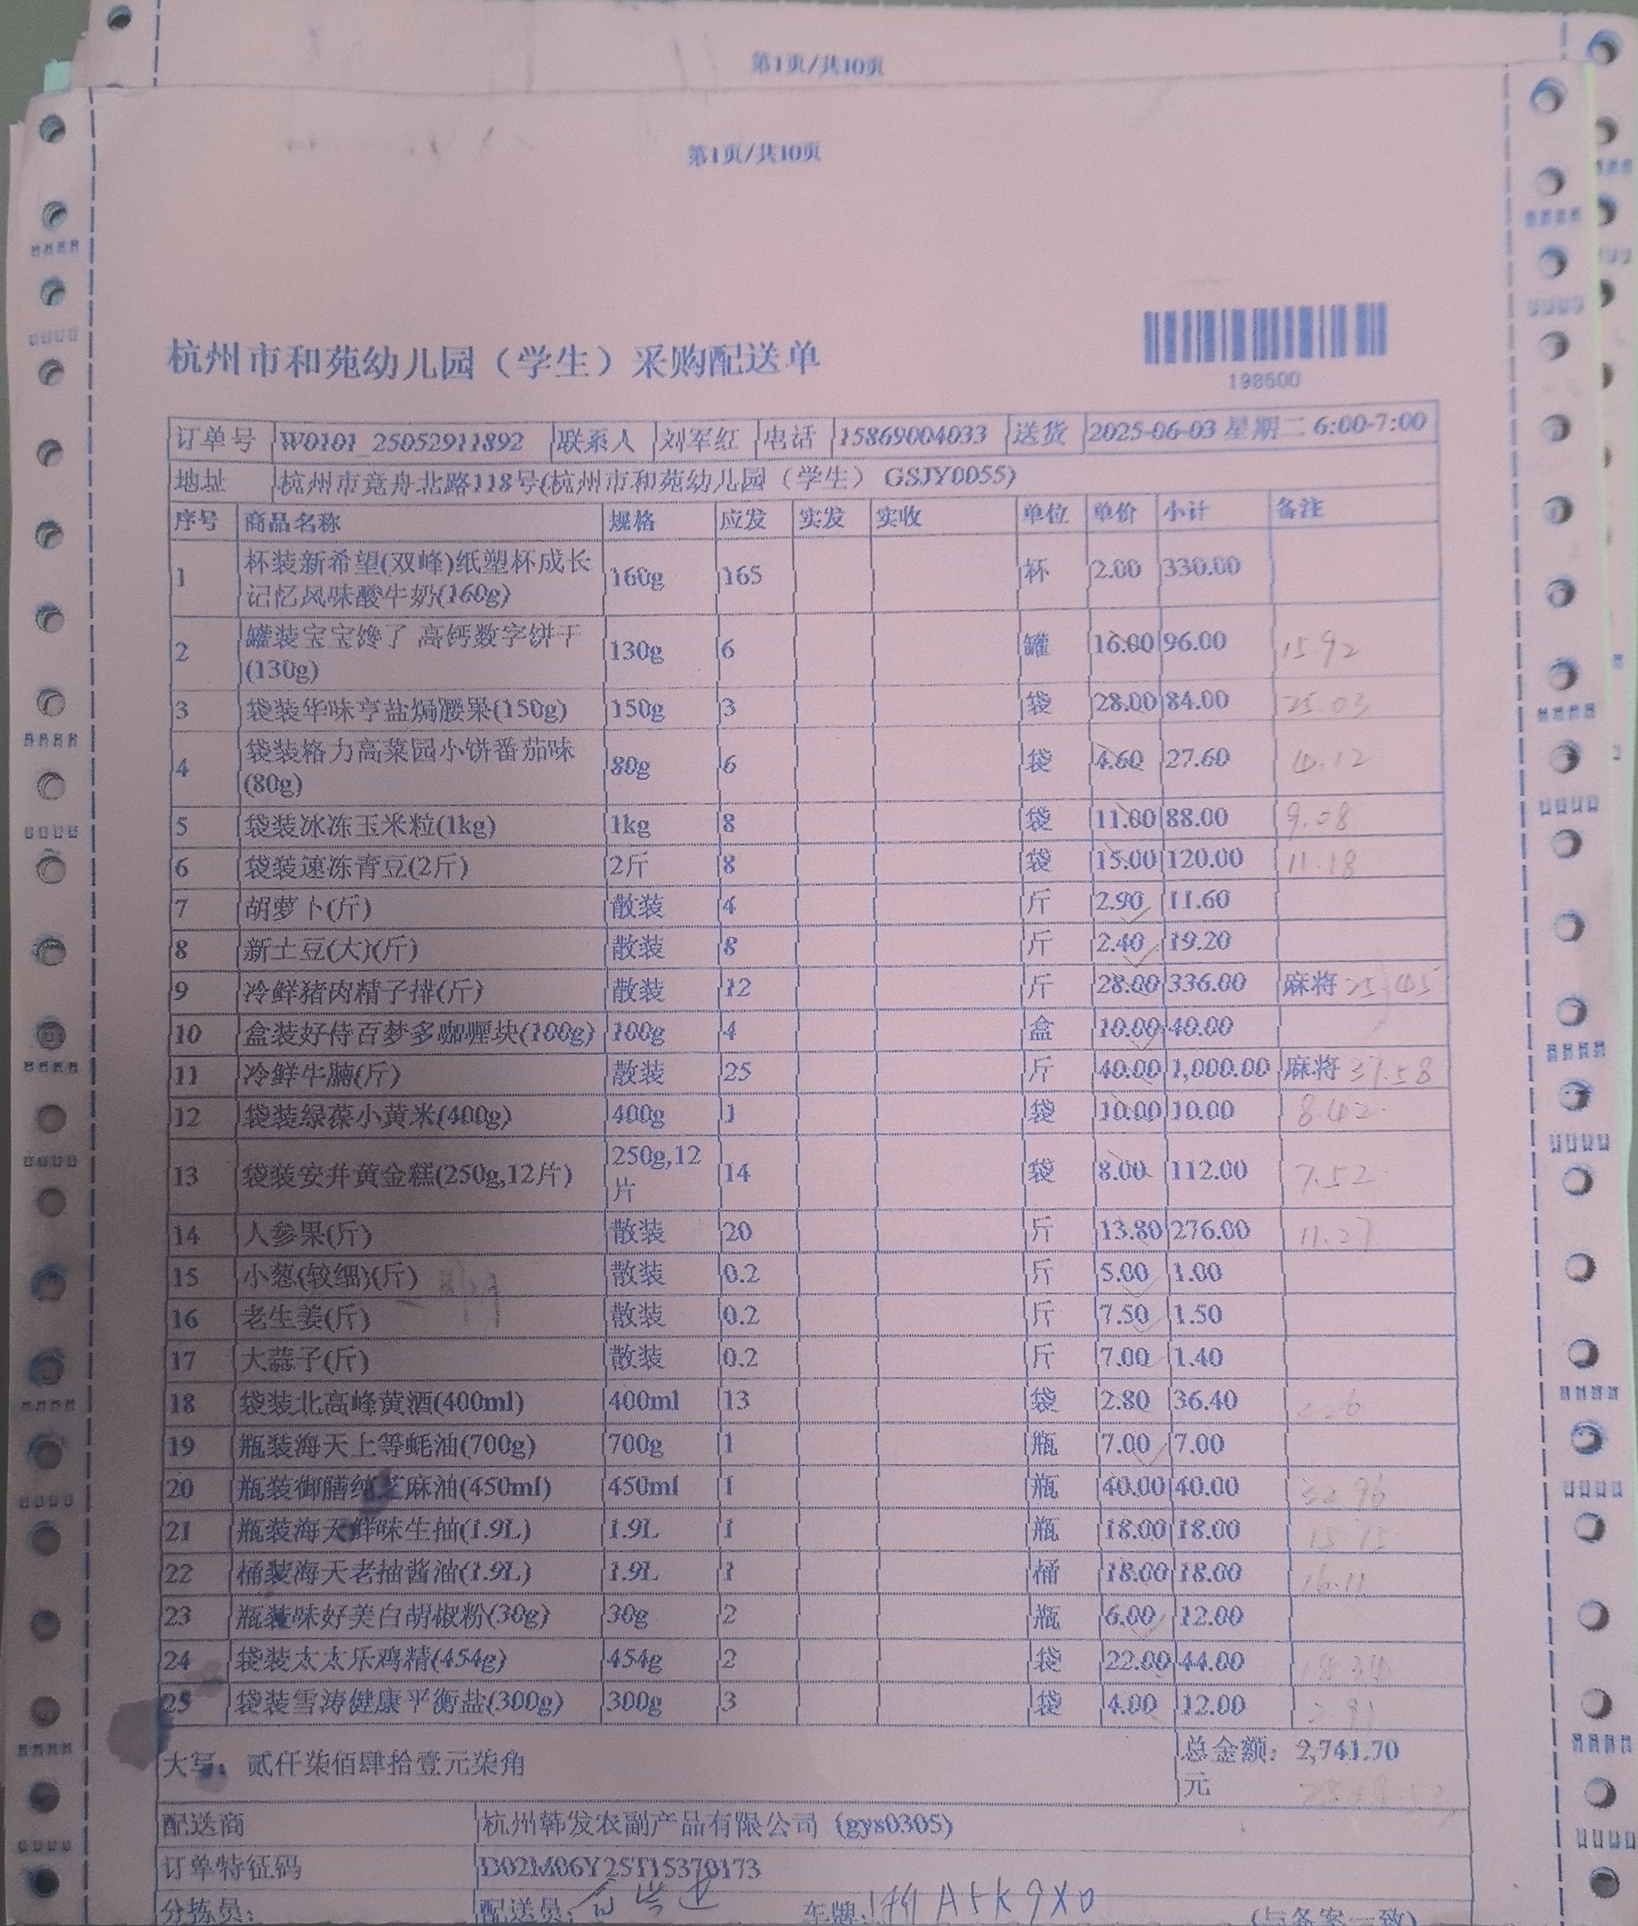 第1页/共10页
第1页/共10页
198500
杭州市和苑幼儿园（学生）采购配送单
订单号 W0101_25052911892 联系人 刘军红 电话 15869004033 送货 2025-06-03 星期二 6:00-7:00
地址 杭州市竞舟北路118号(杭州市和苑幼儿园（学生） GSJY0055)
序号 商品名称 规格 应发 实发 实收 单位 单价 小计 备注
1 杯装新希望(双峰)纸塑杯成长记忆风味酸牛奶(160g) 160g 165 杯 2.00 330.00
2 罐装宝宝馋了 高钙数字饼干(130g) 130g 6 罐 16.00 96.00 15.92
3 袋装华味亨盐焗腰果(150g) 150g 3 袋 28.00 84.00 25.03
4 袋装格力高菜园小饼番茄味(80g) 80g 6 袋 4.60 27.60 4.12
5 袋装冰冻玉米粒(1kg) 1kg 8 袋 11.00 88.00 9.08
6 袋装速冻青豆(2斤) 2斤 8 袋 15.00 120.00 11.18
7 胡萝卜(斤) 散装 4 斤 2.90 11.60
8 新土豆(大)(斤) 散装 8 斤 2.40 19.20
9 冷鲜猪肉精子排(斤) 散装 12 斤 28.00 336.00 麻将 25.45
10 盒装好侍百梦多咖喱块(100g) 100g 4 盒 10.00 40.00
11 冷鲜牛腩(斤) 散装 25 斤 40.00 1,000.00 麻将 37.58
12 袋装绿葆小黄米(400g) 400g 1 袋 10.00 10.00 8.42
13 袋装安井黄金糕(250g,12片) 250g,12片 14 袋 8.00 112.00 7.52
14 人参果(斤) 散装 20 斤 13.80 276.00 11.27
15 小葱(较细)(斤) 散装 0.2 斤 5.00 1.00
16 老生姜(斤) 散装 0.2 斤 7.50 1.50
17 大蒜子(斤) 散装 0.2 斤 7.00 1.40
18 袋装北高峰黄酒(400ml) 400ml 13 袋 2.80 36.40
19 瓶装海天上等蚝油(700g) 700g 1 瓶 7.00 7.00
20 瓶装御膳纯芝麻油(450ml) 450ml 1 瓶 40.00 40.00 32.96
21 瓶装海天鲜味生抽(1.9L) 1.9L 1 瓶 18.00 18.00 15.75
22 桶装海天老抽酱油(1.9L) 1.9L 1 桶 18.00 18.00 16.11
23 瓶装味好美白胡椒粉(30g) 30g 2 瓶 6.00 12.00
24 袋装太太乐鸡精(454g) 454g 2 袋 22.00 44.00 18.34
25 袋装雪涛健康平衡盐(300g) 300g 3 袋 4.00 12.00 2.91
大写：贰仟柒佰肆拾壹元柒角 总金额：2,741.70元
配送商 杭州韩发农副产品有限公司（gys0305）
订单特征码 D02M06Y25T15370173
分拣员: 配送员: 车牌: A5K9X0 (与备案一致)